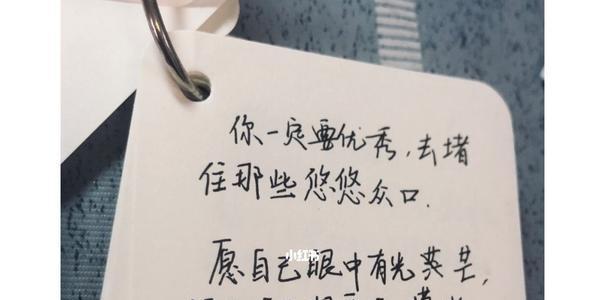 你一定要优秀，去堵
住那些悠悠众口.
小红书
愿自己眼中有光芒，